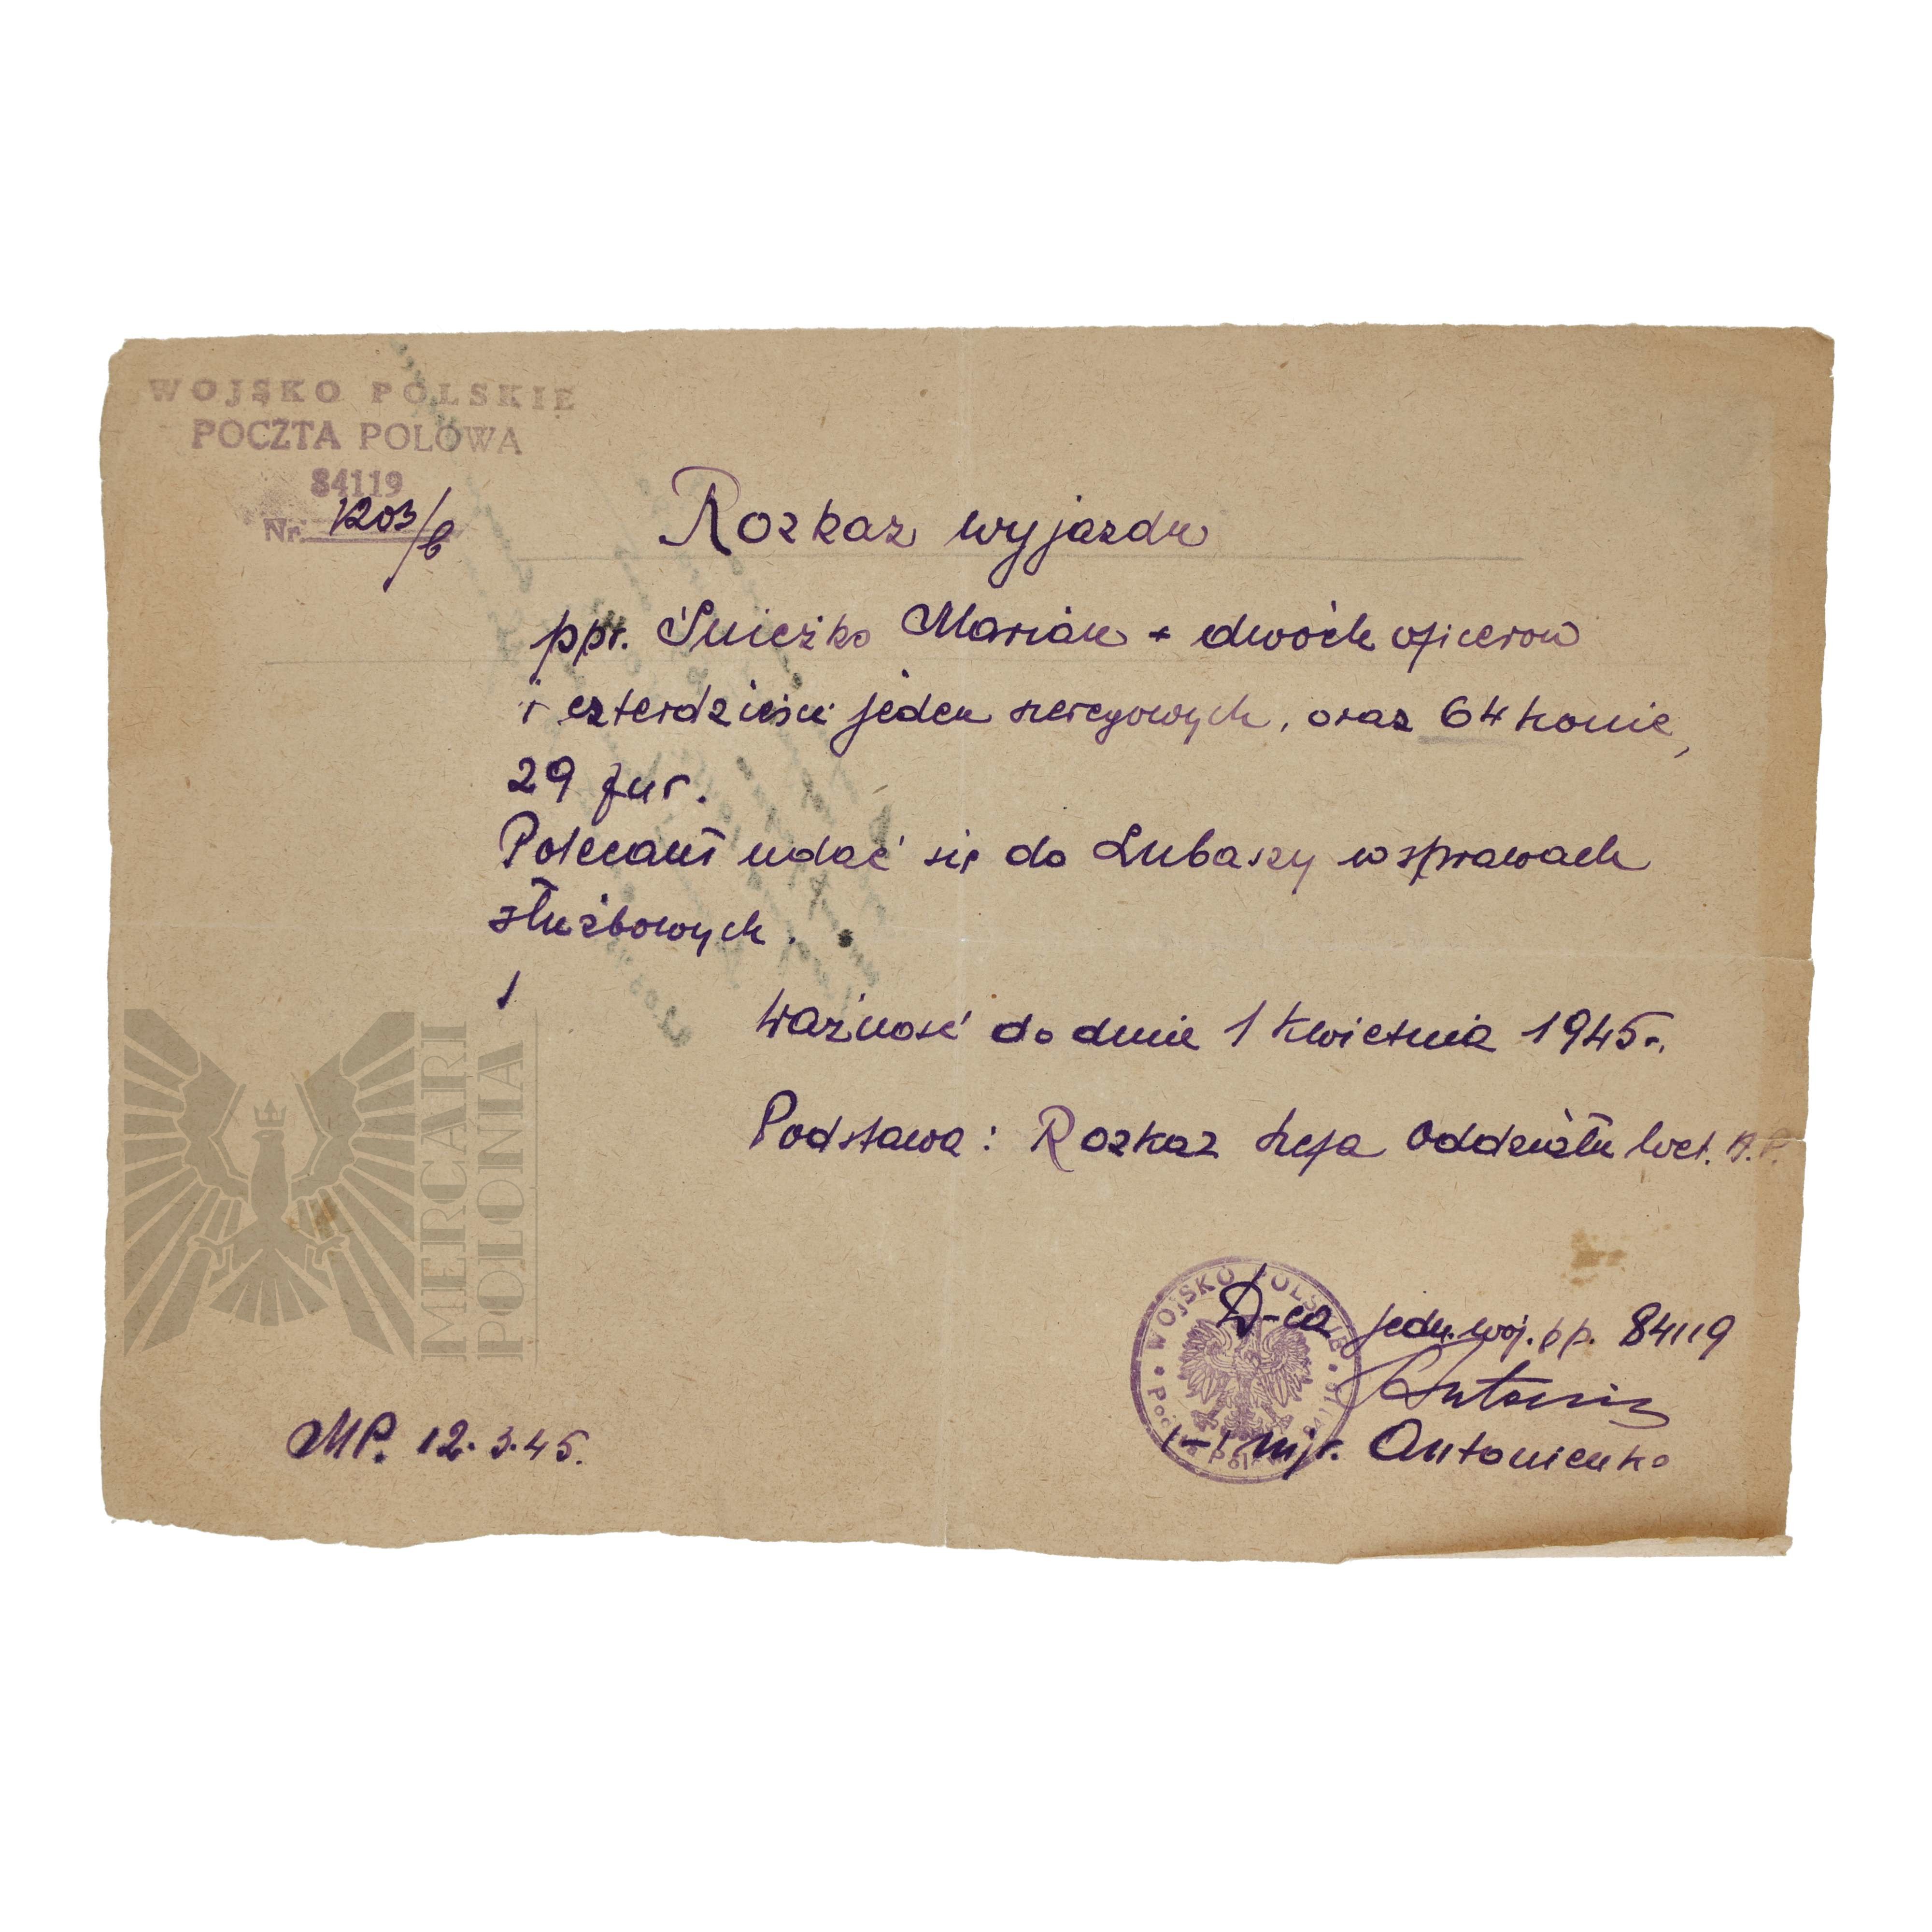 WOJSKO POLSKIE
POCZTA POLOWA
84119
Nr. 1203/b
Rozkaz wyjazdu
ppr. Śnieżko Marian + dwóch oficerow
i czterdzieści jeden szeregowych, oraz 64 konie,
29 fur.
Polecam udać się do Lubaszy w sprawach
służbowych.
Ważność do dnie 1 kwietnia 1945r.
Podstawa: Rozkaz szefa Oddziału Wet. A.P.
WOJSKO POLSKIE
D-ca jedn. woj. pp. 84119
/-/ mjr. Antonienko
MP. 12.3.45.
MERCARI
POLONIA